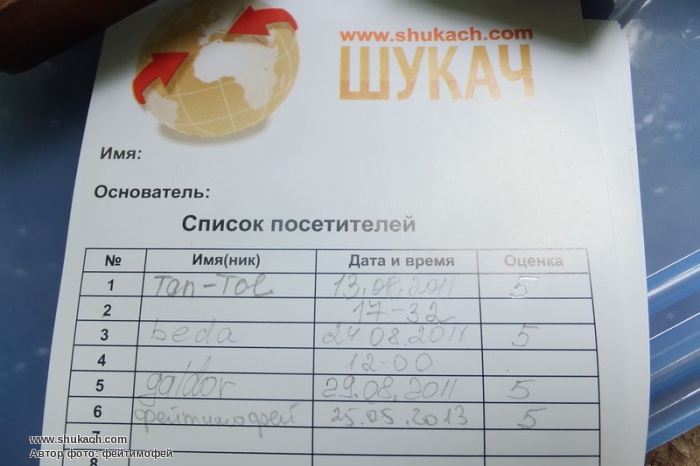 www.shukach.com
ШУКАЧ
Имя:
Основатель:
Список посетителей
№ Имя(ник) Дата и время Оценка
1 Tan-Tol 13.08.2011 5
2 17-32
3 beda 24 08.2011 5
4 12-00
5 galdor 29.08.2011 5
6 фейтимофей 25.05.2013 5
7
8
www.shukach.com
Автор фото: фейтимофей